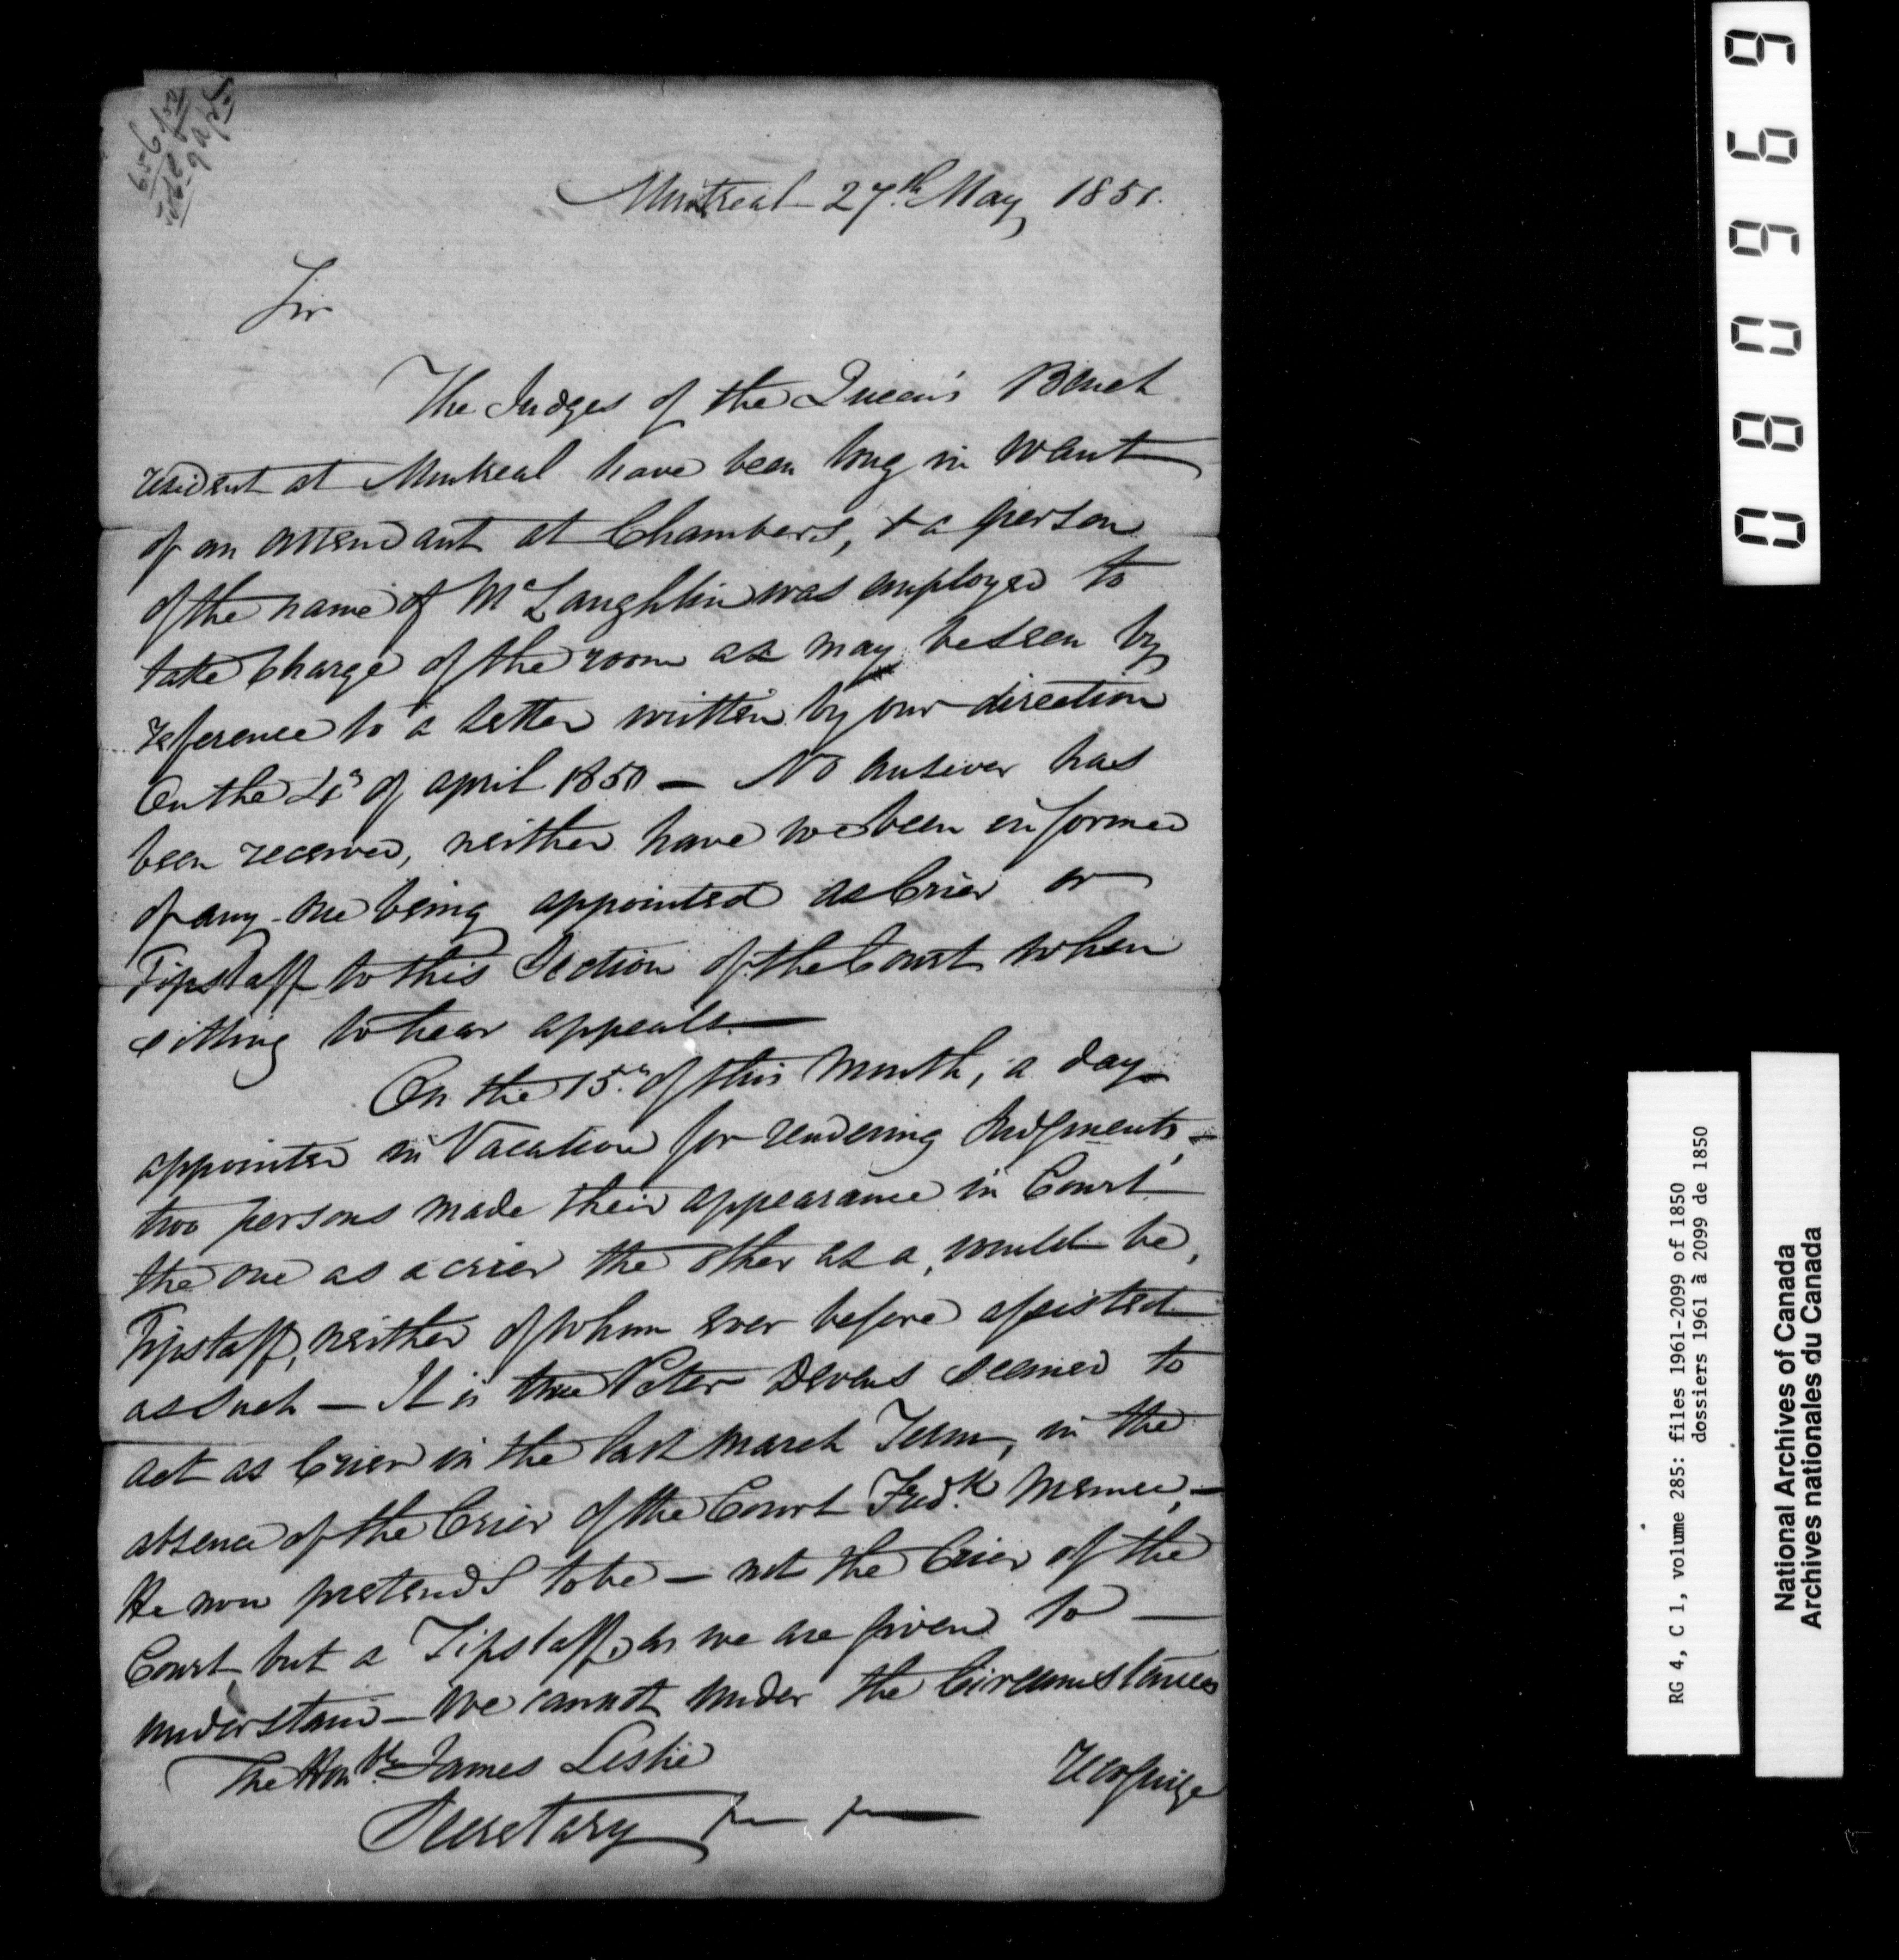 Montreal 27.th May 1851.
Sir
The Judges of the Queen's Bench
resident at Montreal have been long in want
of an attendant at Chambers, & a person
of the name of McLaughlin was employed to
take Charge of the room as may be seen by
reference to a letter written by our direction
On the 4th of april 1850 — No answer has
been received, neither have we been informed
of any one being appointed as Crier or
Tipstaff to this Section of the Court when
sitting to hear appeals. —
On the 15.th of this Month, a day
appointed in Vacation for rendering Judgments, —
two persons made their appearance in Court
the one as a crier the other as a, would be,
Tipstaff, neither of whom ever before assisted
as such — It is true Peter Devens seemed to
act as Crier in the last march Term, in the
absence of the Crier of the Court Fred.k
He now pretends to be — not the Crier of the
Court but a Tipstaff, as we are given to —
understand — We cannot under the Circumstances
The Honble James Leslie
recognize
Secretary
080969
RG 4, C 1, volume 285: files 1961-2099 of 1850
dossiers 1961 à 2099 de 1850
National Archives of Canada
Archives nationales du Canada